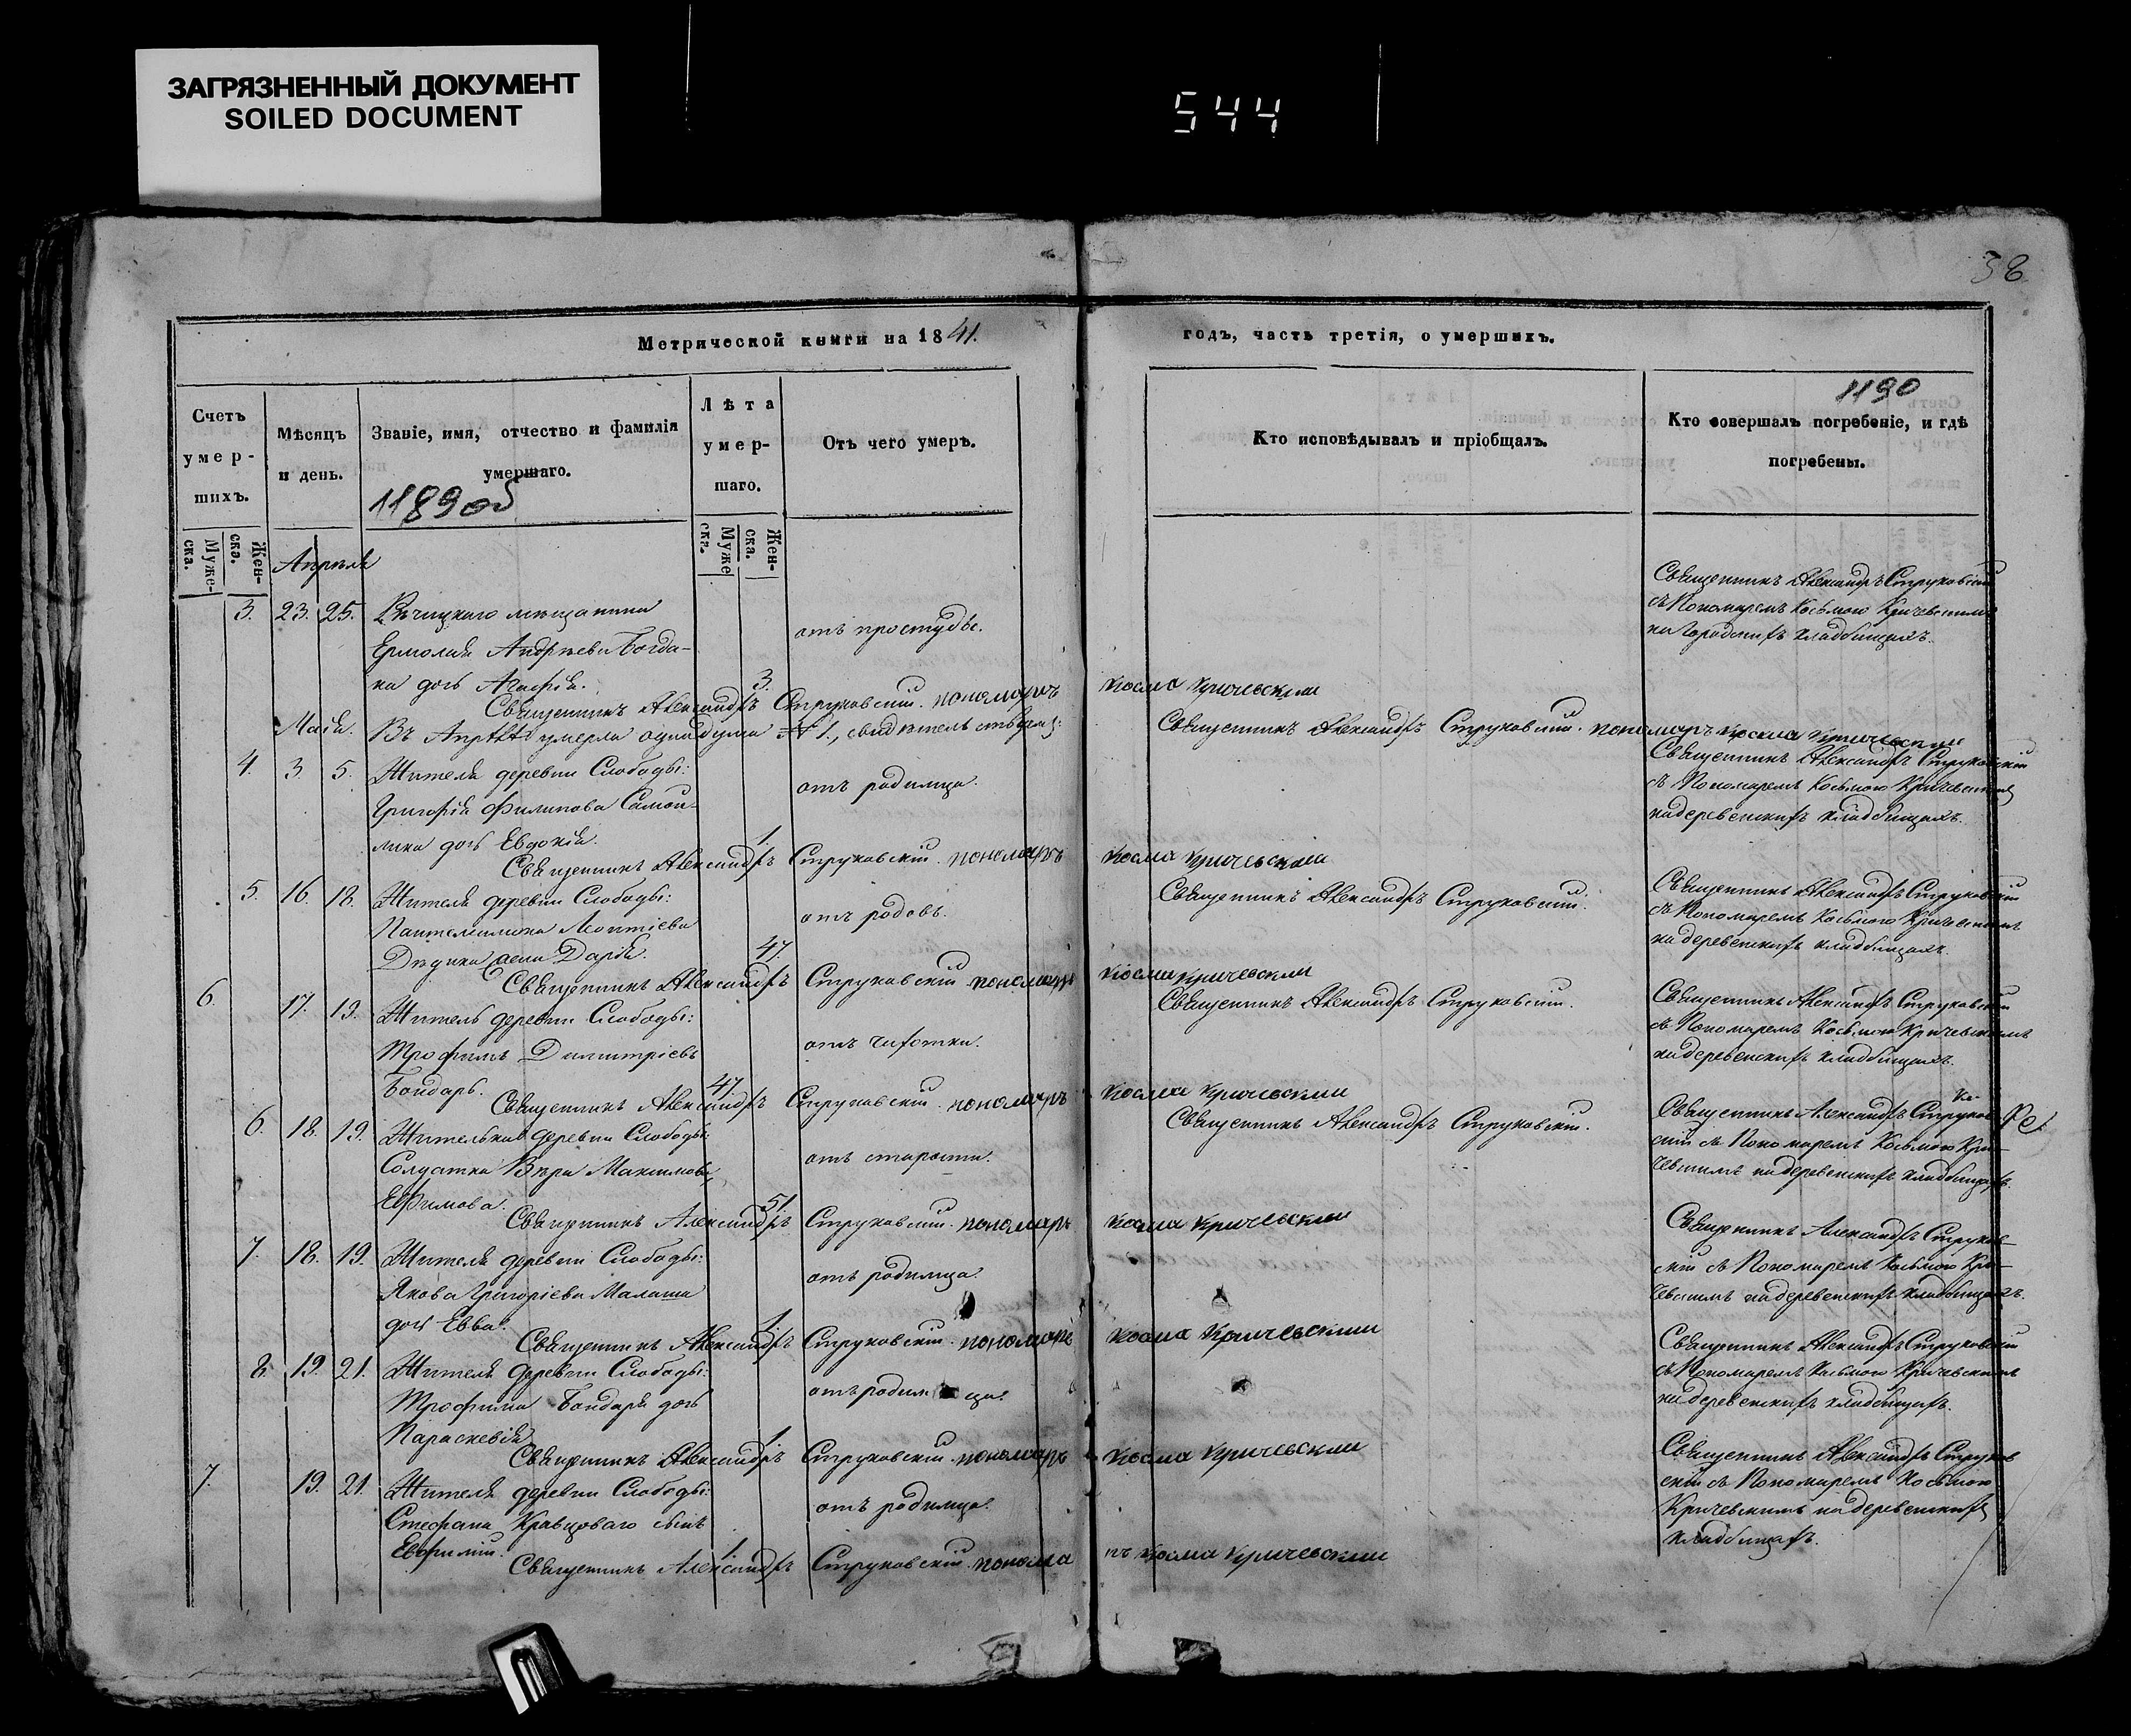 ЗАГРЯЗНЕННЫЙ ДОКУМЕНТ
SOILED DOCUMENT
544
38
Метрической книги на 1841. годъ, часть третія, о умершихъ.
Счетъ умер-шихъ.
Муже-ска.
Жен-ска.
Мѣсяцъ и день.
Званіе, имя, отчество и фамилія умершаго.
1189об
Лѣта умер-шаго.
Муже ска.
Жен-ска.
Отъ чего умеръ.
Кто исповѣдывалъ и пріобщалъ.
1190
Кто совершалъ погребеніе, и гдѣ погребены.
Апрѣль
3. 23. 25. Рѣчицкаго мѣщанина
Ермолая Андрѣева Богда-
на дочь Агафія.
3.
отъ простуды.
Священникъ Александръ Струковскій
съ Пономаремъ Косьмою Кричевскимъ
на Городскихъ кладбищахъ.
Священникъ Александръ Струковскій. пономаръ Косма Кричевскии
Маій. Въ Апрѣлѣ умерла одна душа № 1., свидѣтельствуемъ:
Священникъ Александръ Струковскій. пономаръ Косма Кричевскии
4. 3 5. Жителя деревни Слободы:
Григорія Филипова Самой-
лика дочь Евдокія.
1.
отъ родимца.
Священникъ Александръ Струковскій
съ Пономаремъ Косьмою Кричевскимъ
на деревенскихъ кладбищахъ.
Священникъ Александръ Струковскій. пономаръ Косма Кричевскии
5. 16. 18. Жителя деревни Слободы:
Пантелимона Леонтіева
Дѣдика жена Дарія.
47.
отъ родовъ.
Священникъ Александръ Струковскій.
Священникъ Александръ Струковскій
съ Пономаремъ Косьмою Кричевскимъ
на деревенскихъ кладбищахъ.
Священникъ Александръ Струковскій пономаръ Косма Кричевскии
6. 17. 19. Житель деревни Слободы:
Трофимъ Димитріевъ
Бондарь.
47.
отъ чахотки.
Священникъ Александръ Струковскій.
Священникъ Александръ Струковскій
съ Пономаремъ Косьмою Кричевскимъ
на деревенскихъ кладбищахъ.
Священникъ Александръ Струковскій. пономаръ Косма Кричевскии
6. 18. 19. Жителька деревни Слободы:
Солдатка Вѣра Максимова
Ефимова.
51.
отъ старости.
Священникъ Александръ Струковскій.
Священникъ Александръ Струков-
скій съ Пономаремъ Косьмою Кри-
чевскимъ на деревенскихъ кладбищахъ.
Священникъ Александръ Струковскій. пономаръ Косма Кричевскии
7. 18. 19. Жителя деревни Слободы:
Якова Григоріева Малаша
дочь Евва.
1.
отъ родимца.
Священникъ Александръ Струков-
скій съ Пономаремъ Косьмою Кри-
чевскимъ на деревенскихъ кладбищахъ.
Священникъ Александръ Струковскій. пономаръ Косма Кричевскии
8. 19. 21. Жителя деревни Слободы:
Трофима Бондаря дочь
Параскевія
1.
отъ родимца.
Священникъ Александръ Струковскій
съ Пономаремъ Косьмою Кричевскимъ
на деревенскихъ кладбищахъ.
Священникъ Александръ Струковскій. пономаръ Косма Кричевскии
7. 19. 21. Жителя деревни Слободы:
Стефана Кравцоваго сынъ
Евфимій.
1.
отъ родимца.
Священникъ Александръ Струков
скій съ Пономаремъ Косьмою
Кричевскимъ на деревенскихъ
кладбищахъ.
Священникъ Александръ Струковскій. понома ръ Косма Кричевскии